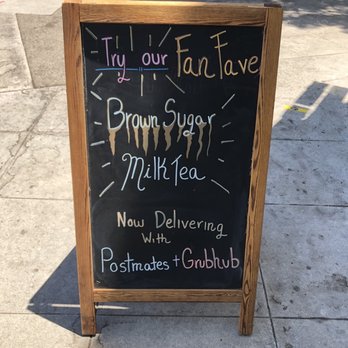 Try our Fan Fave
Brown Sugar
Milk Tea
Now Delivering
With
Postmates + Grubhub